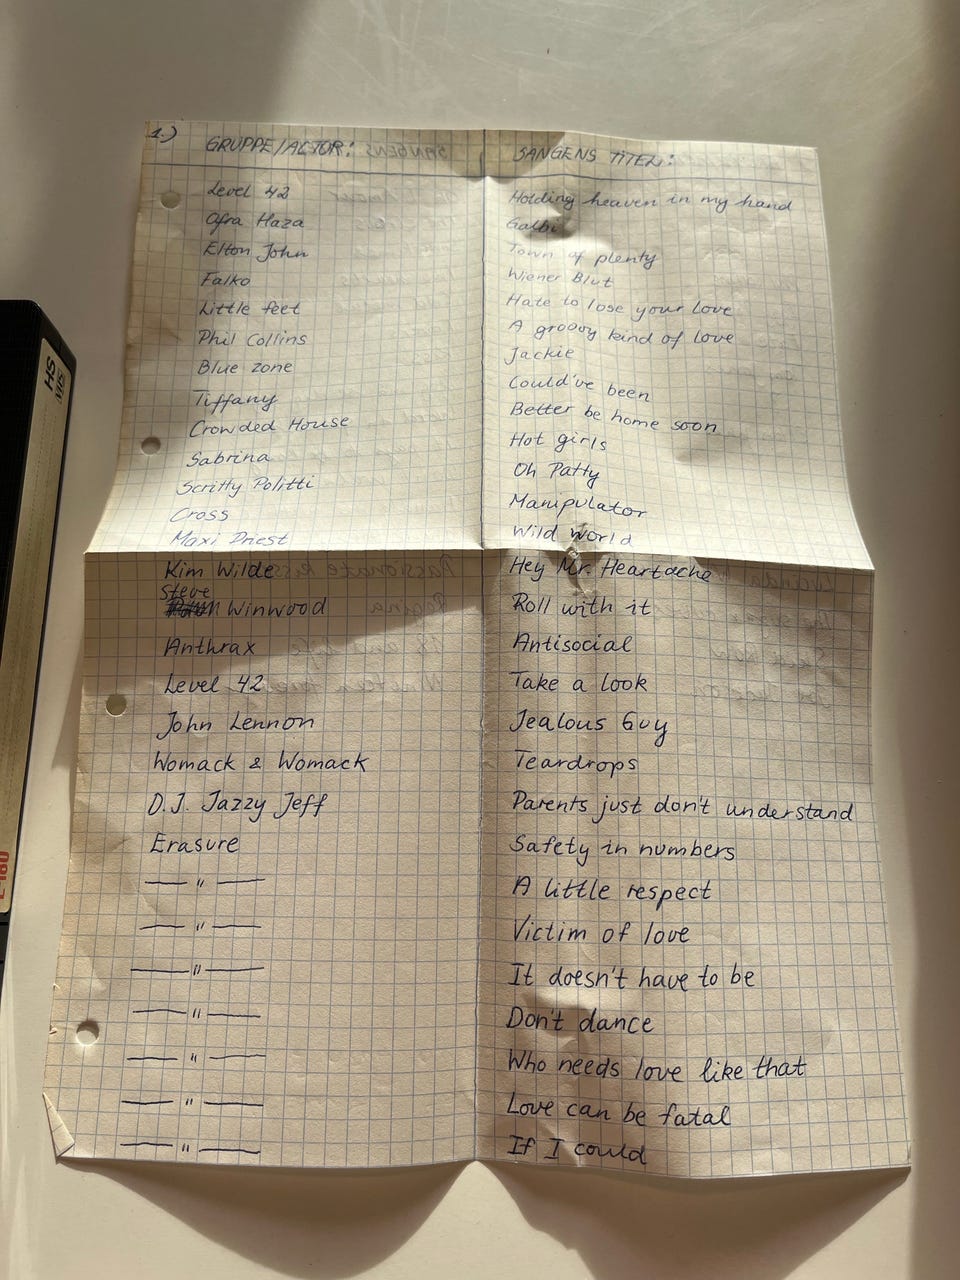 1.) GRUPPE/ACTOR: SANGENS TITEL:
Level 42 Holding heaven in my hand
Ofra Haza Galbi
Elton John Town of plenty
Falko Wiener Blut
Little feet Hate to lose your love
Phil Collins A groovy kind of love
Blue zone Jackie
Tiffany Could've been
Crowded House Better be home soon
Sabrina Hot girls
Scritty Politti Oh Patty
Cross Manipulator
Maxi Priest Wild world
Kim Wilde Hey Mr. Heartache
Steve Winwood Roll with it
Anthrax Antisocial
Level 42 Take a look
John Lennon Jealous Guy
Womack & Womack Teardrops
D.J. Jazzy Jeff Parents just don't understand
Erasure Safety in numbers
— " — A little respect
— " — Victim of love
— " — It doesn't have to be
— " — Don't dance
— " — Who needs love like that
— " — Love can be fatal
— " — If I could
HS
VHS
E-180